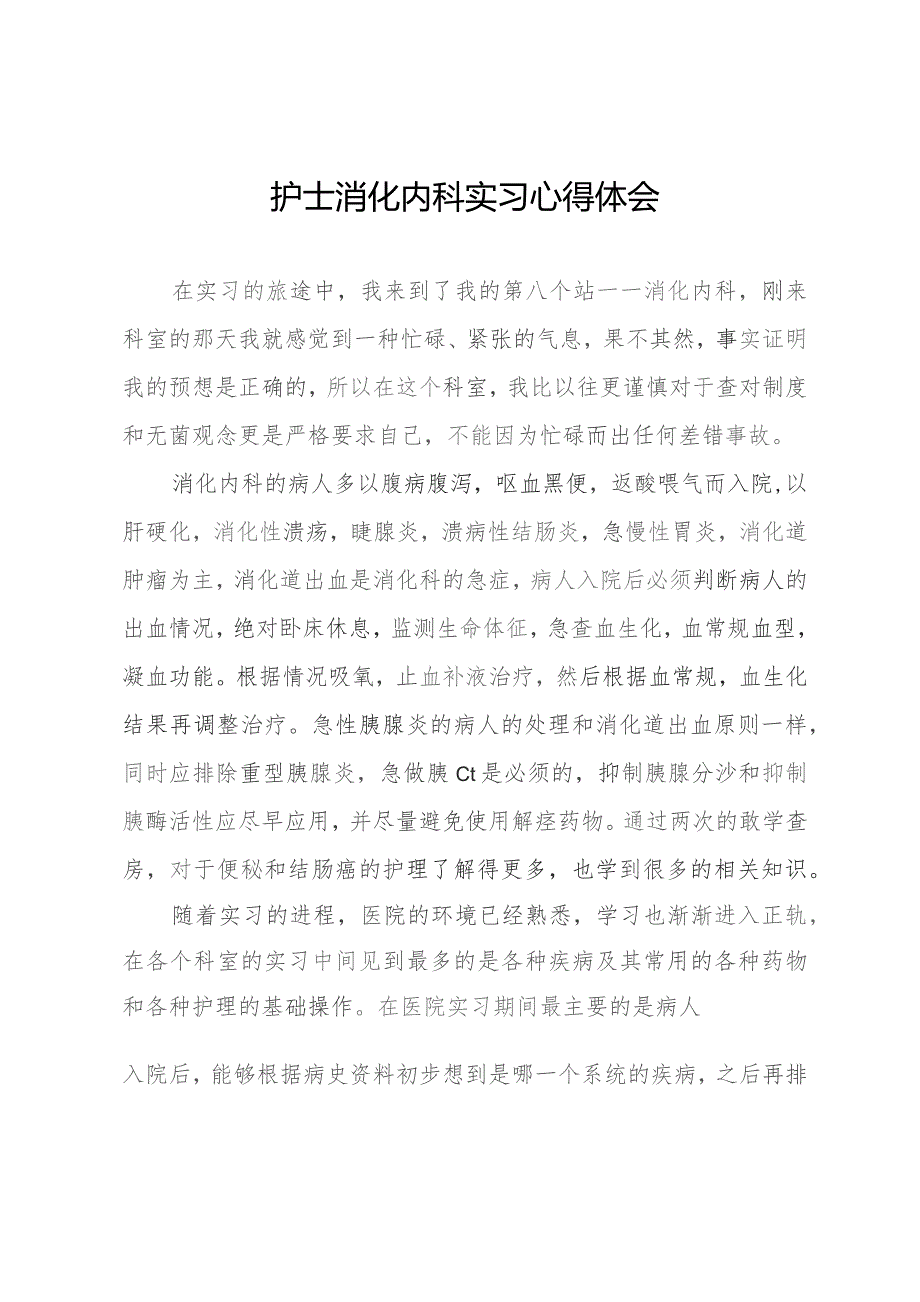 护士消化内科实习心得体会
在实习的旅途中，我来到了我的第八个站一一消化内科，刚来
科室的那天我就感觉到一种忙碌、紧张的气息，果不其然，事实证明
我的预想是正确的，所以在这个科室，我比以往更谨慎对于查对制度
和无菌观念更是严格要求自己，不能因为忙碌而出任何差错事故。
消化内科的病人多以腹病腹泻，呕血黑便，返酸喂气而入院,以
肝硬化，消化性溃疡，睫腺炎，溃病性结肠炎，急慢性胃炎，消化道
肿瘤为主，消化道出血是消化科的急症，病人入院后必须判断病人的
出血情况，绝对卧床休息，监测生命体征，急查血生化，血常规血型，
凝血功能。根据情况吸氧，止血补液治疗，然后根据血常规，血生化
结果再调整治疗。急性胰腺炎的病人的处理和消化道出血原则一样，
同时应排除重型胰腺炎，急做胰 Ct 是必须的，抑制胰腺分沙和抑制
胰酶活性应尽早应用，并尽量避免使用解痉药物。通过两次的敢学查
房，对于便秘和结肠癌的护理了解得更多，也学到很多的相关知识。
随着实习的进程，医院的环境已经熟悉，学习也渐渐进入正轨，
在各个科室的实习中间见到最多的是各种疾病及其常用的各种药物
和各种护理的基础操作。在医院实习期间最主要的是病人
入院后，能够根据病史资料初步想到是哪一个系统的疾病，之后再排